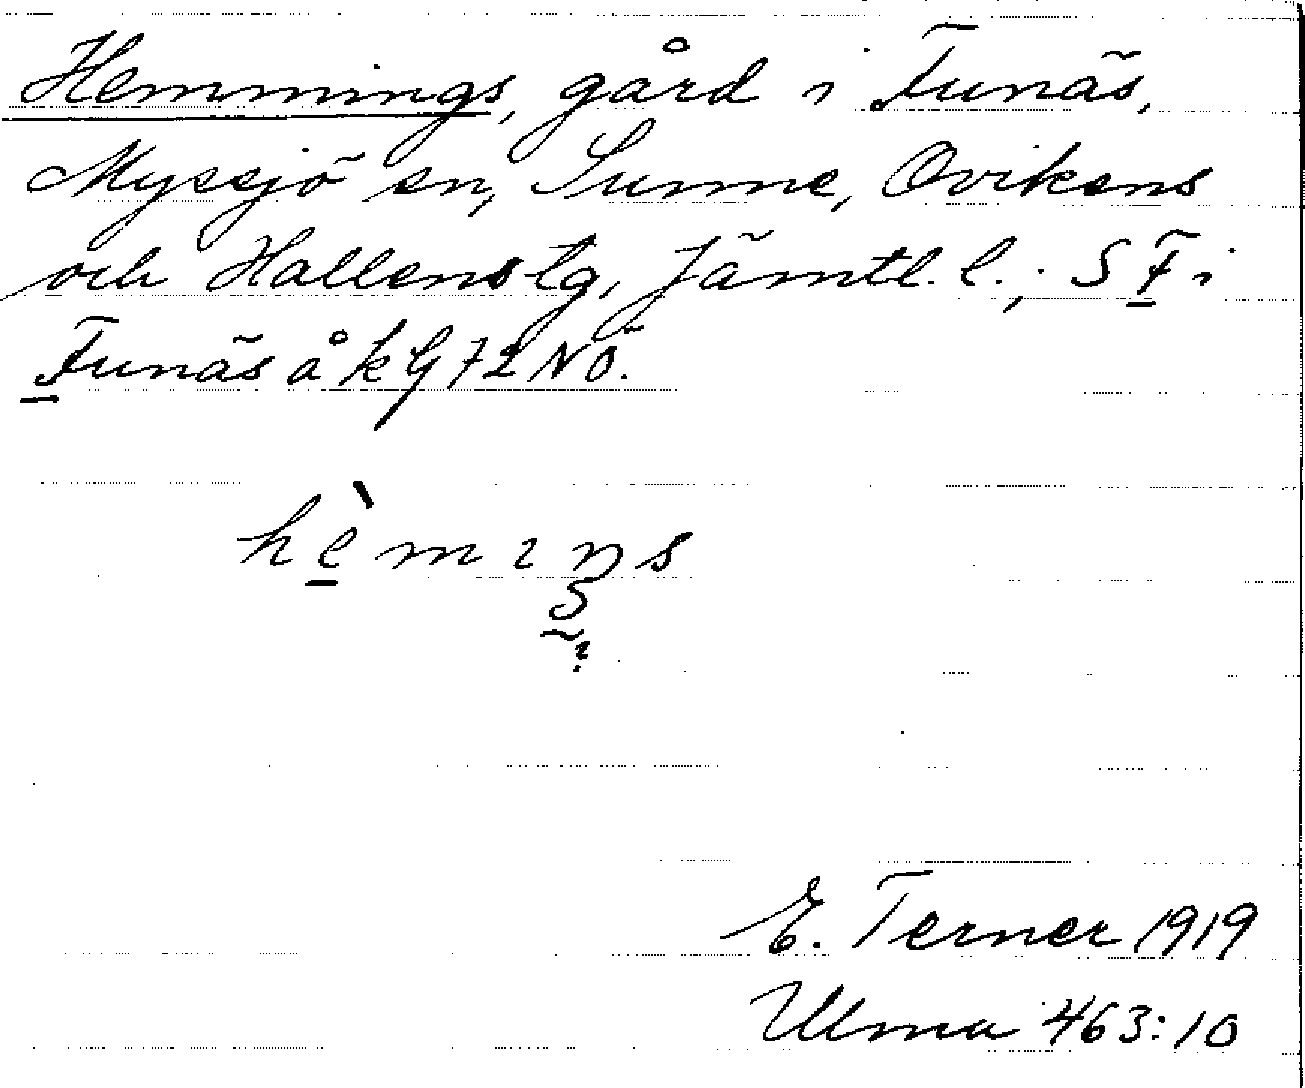 Hemmings, gård i Funäs,
Myssjö sn, Sunne, Ovikens
och Hallens tg, Jämtl. l.; S F i
Funäs å kG 72 NO.
hèmıns
E. Terner 1919
Ulma 463:10